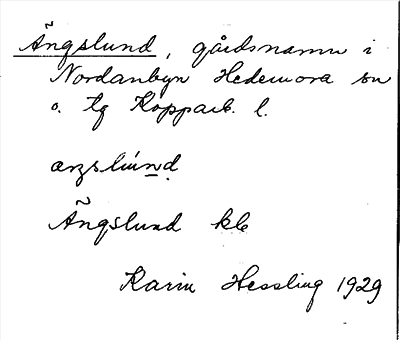 Ängslund, gårdsnamn i
Nordanbyn Hedemora sn
o. tg Kopparb. l.
Ängslund kb
Karin Hessling 1929